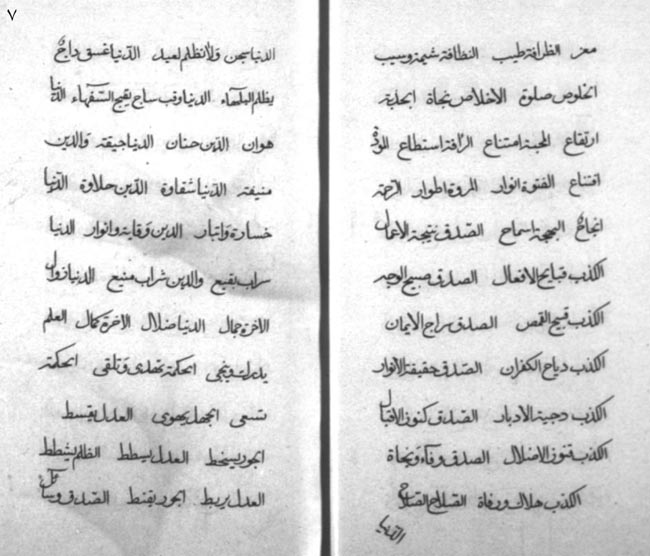 معز الظرافة طيب النظافة شيمة وسيب
الخلوص صلوة الاخلاص نجاة
ارتفاع المحبة امتناع الرأفة استطاع المودة
اقتناع الفتوة انوار المروة اطوار الرحمة
انجاح البهجة اسماح الصدق نتيجة الاعمال
الكذب قبايح الافعال الصدق صبيح الوجه
الكذب قبيح الصدق سراج الايمان
الكذب دياح الكفران الصدق حقيقة الانوار
الكذب دجية الادبار الصدق كنوز الاقبال
الكذب فنون الاضلال الصدق وفاء ونجاة
الكذب هلاك ورفاة الصلاح
الدنيا
٧
الدنيا سجن ولا تظلم لعيد الدنيا غسق داج
يظلم الدنيا وقب ساج يقبح السفهاء الدنيا
هوان الدين حنان الدنيا جيفة والدين
منيفة الدنيا شقاوة الدين حلاوة الدنيا
خسارة واتبار الدين وقاية وانوار الدنيا
سراب بقيع والدين شراب منيع الدنيا زوال
الآخرة جمال الدنيا ضلال الآخرة كمال العلم
يدرك وينجى الحكمة تهدى وتلقى الحكمة
تسعى الجهل يهوى العدل يقسط
الجور يسخط العدل يسطط الظلم يشطط
العدل يربط الجور يقنط الصدق وسائل